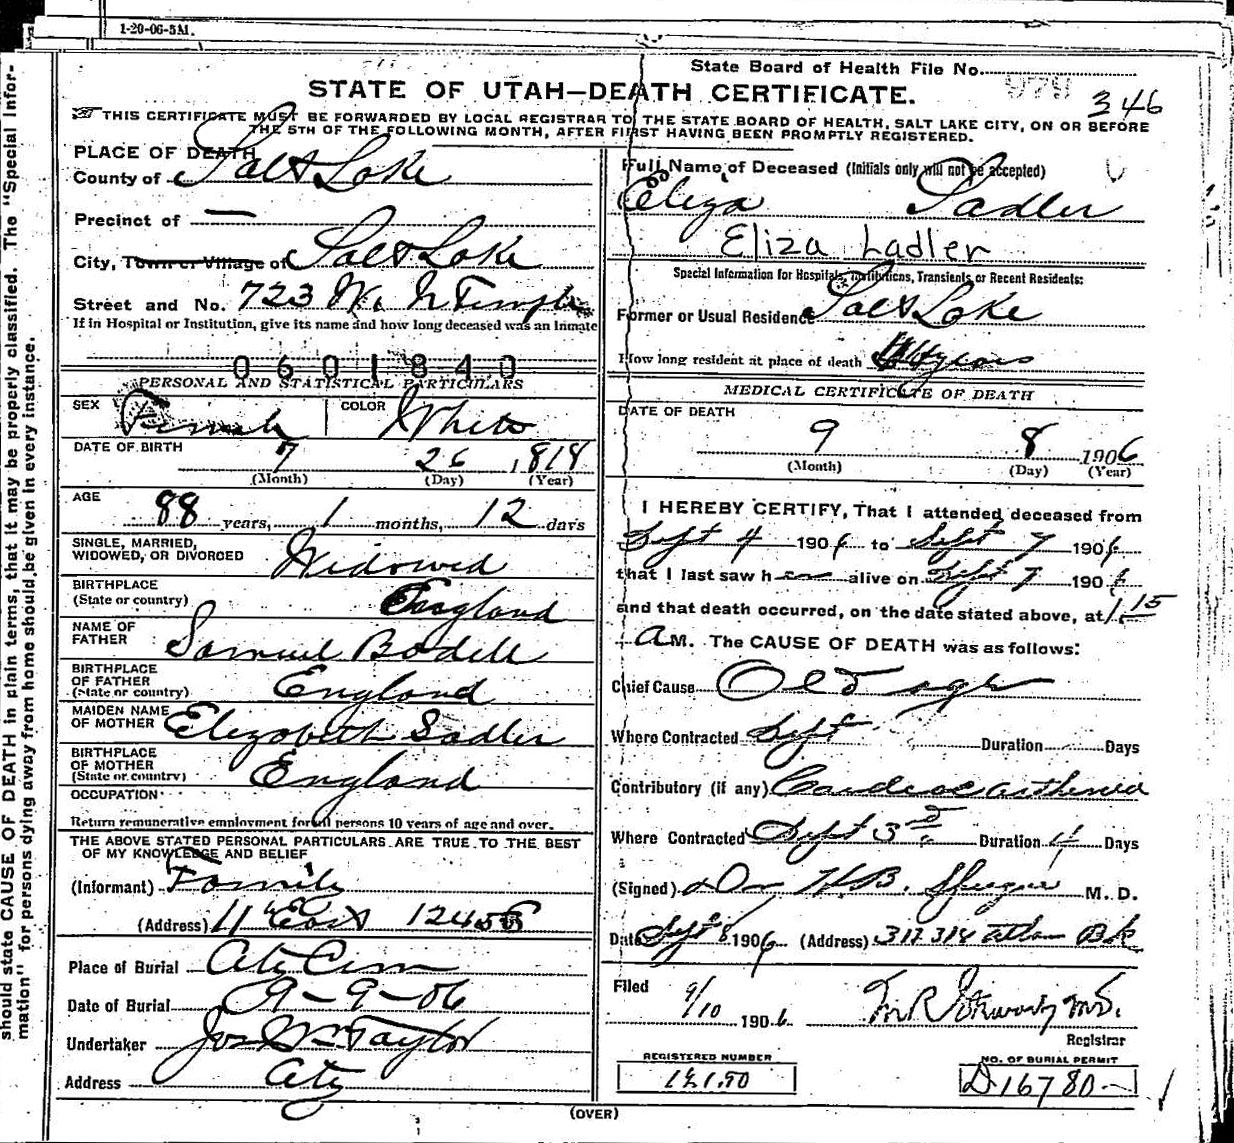 1-20-06-5M.
State Board of Health File No. 979
346
STATE OF UTAH—DEATH CERTIFICATE.
THIS CERTIFICATE MUST BE FORWARDED BY LOCAL REGISTRAR TO THE STATE BOARD OF HEALTH, SALT LAKE CITY, ON OR BEFORE
THE 5TH OF THE FOLLOWING MONTH, AFTER FIRST HAVING BEEN PROMPTLY REGISTERED.
PLACE OF DEATH
County of Salt Lake
Precinct of —
City, Town or Village of Salt Lake
Street and No. 723 W. N Temple
If in Hospital or Institution, give its name and how long deceased was an Inmate
0601840
PERSONAL AND STATISTICAL PARTICULARS
SEX Female COLOR White
DATE OF BIRTH 7 26 1818
(Month) (Day) (Year)
AGE 88 years, 1 months, 12 days
SINGLE, MARRIED,
WIDOWED, OR DIVORCED Widowed
BIRTHPLACE
(State or country) England
NAME OF
FATHER Samuel Bodell
BIRTHPLACE
OF FATHER
(State or country) England
MAIDEN NAME
OF MOTHER Elizabeth Sadler
BIRTHPLACE
OF MOTHER
(State or country) England
OCCUPATION
Return remunerative employment for all persons 10 years of age and over.
THE ABOVE STATED PERSONAL PARTICULARS ARE TRUE TO THE BEST
OF MY KNOWLEDGE AND BELIEF
(Informant) Family
(Address) 11th East
Place of Burial City Cem
Date of Burial 9-9-06
Undertaker Jos Wm Taylor
Address City
Full Name of Deceased (Initials only will not be accepted)
Eliza Sadler
Eliza Ladler
Special Information for Hospitals, Institutions, Transients or Recent Residents:
Former or Usual Residence Salt Lake
How long resident at place of death years
MEDICAL CERTIFICATE OF DEATH
DATE OF DEATH
9 8 1906
(Month) (Day) (Year)
I HEREBY CERTIFY, That I attended deceased from
Sept 4 1906 to Sept 7 1906
that I last saw her alive on Sept 7 1906
and that death occurred, on the date stated above, at 1.15
A M. The CAUSE OF DEATH was as follows:
Chief Cause Old age
Where Contracted Sept Duration Days
Contributory (if any) Cardiac
Where Contracted Sept 3rd Duration 4 Days
(Signed) Dr H.B. M. D.
Date Sept 8 1906 (Address) 312 314 Atlas Bk
Filed 9/10 1906 M.D.
Registrar
REGISTERED NUMBER
NO. OF BURIAL PERMIT
D. 16780
(OVER)
should state CAUSE OF DEATH in plain terms, that it may be properly classified. The "Special Infor-
mation" for persons dying away from home should be given in every instance.